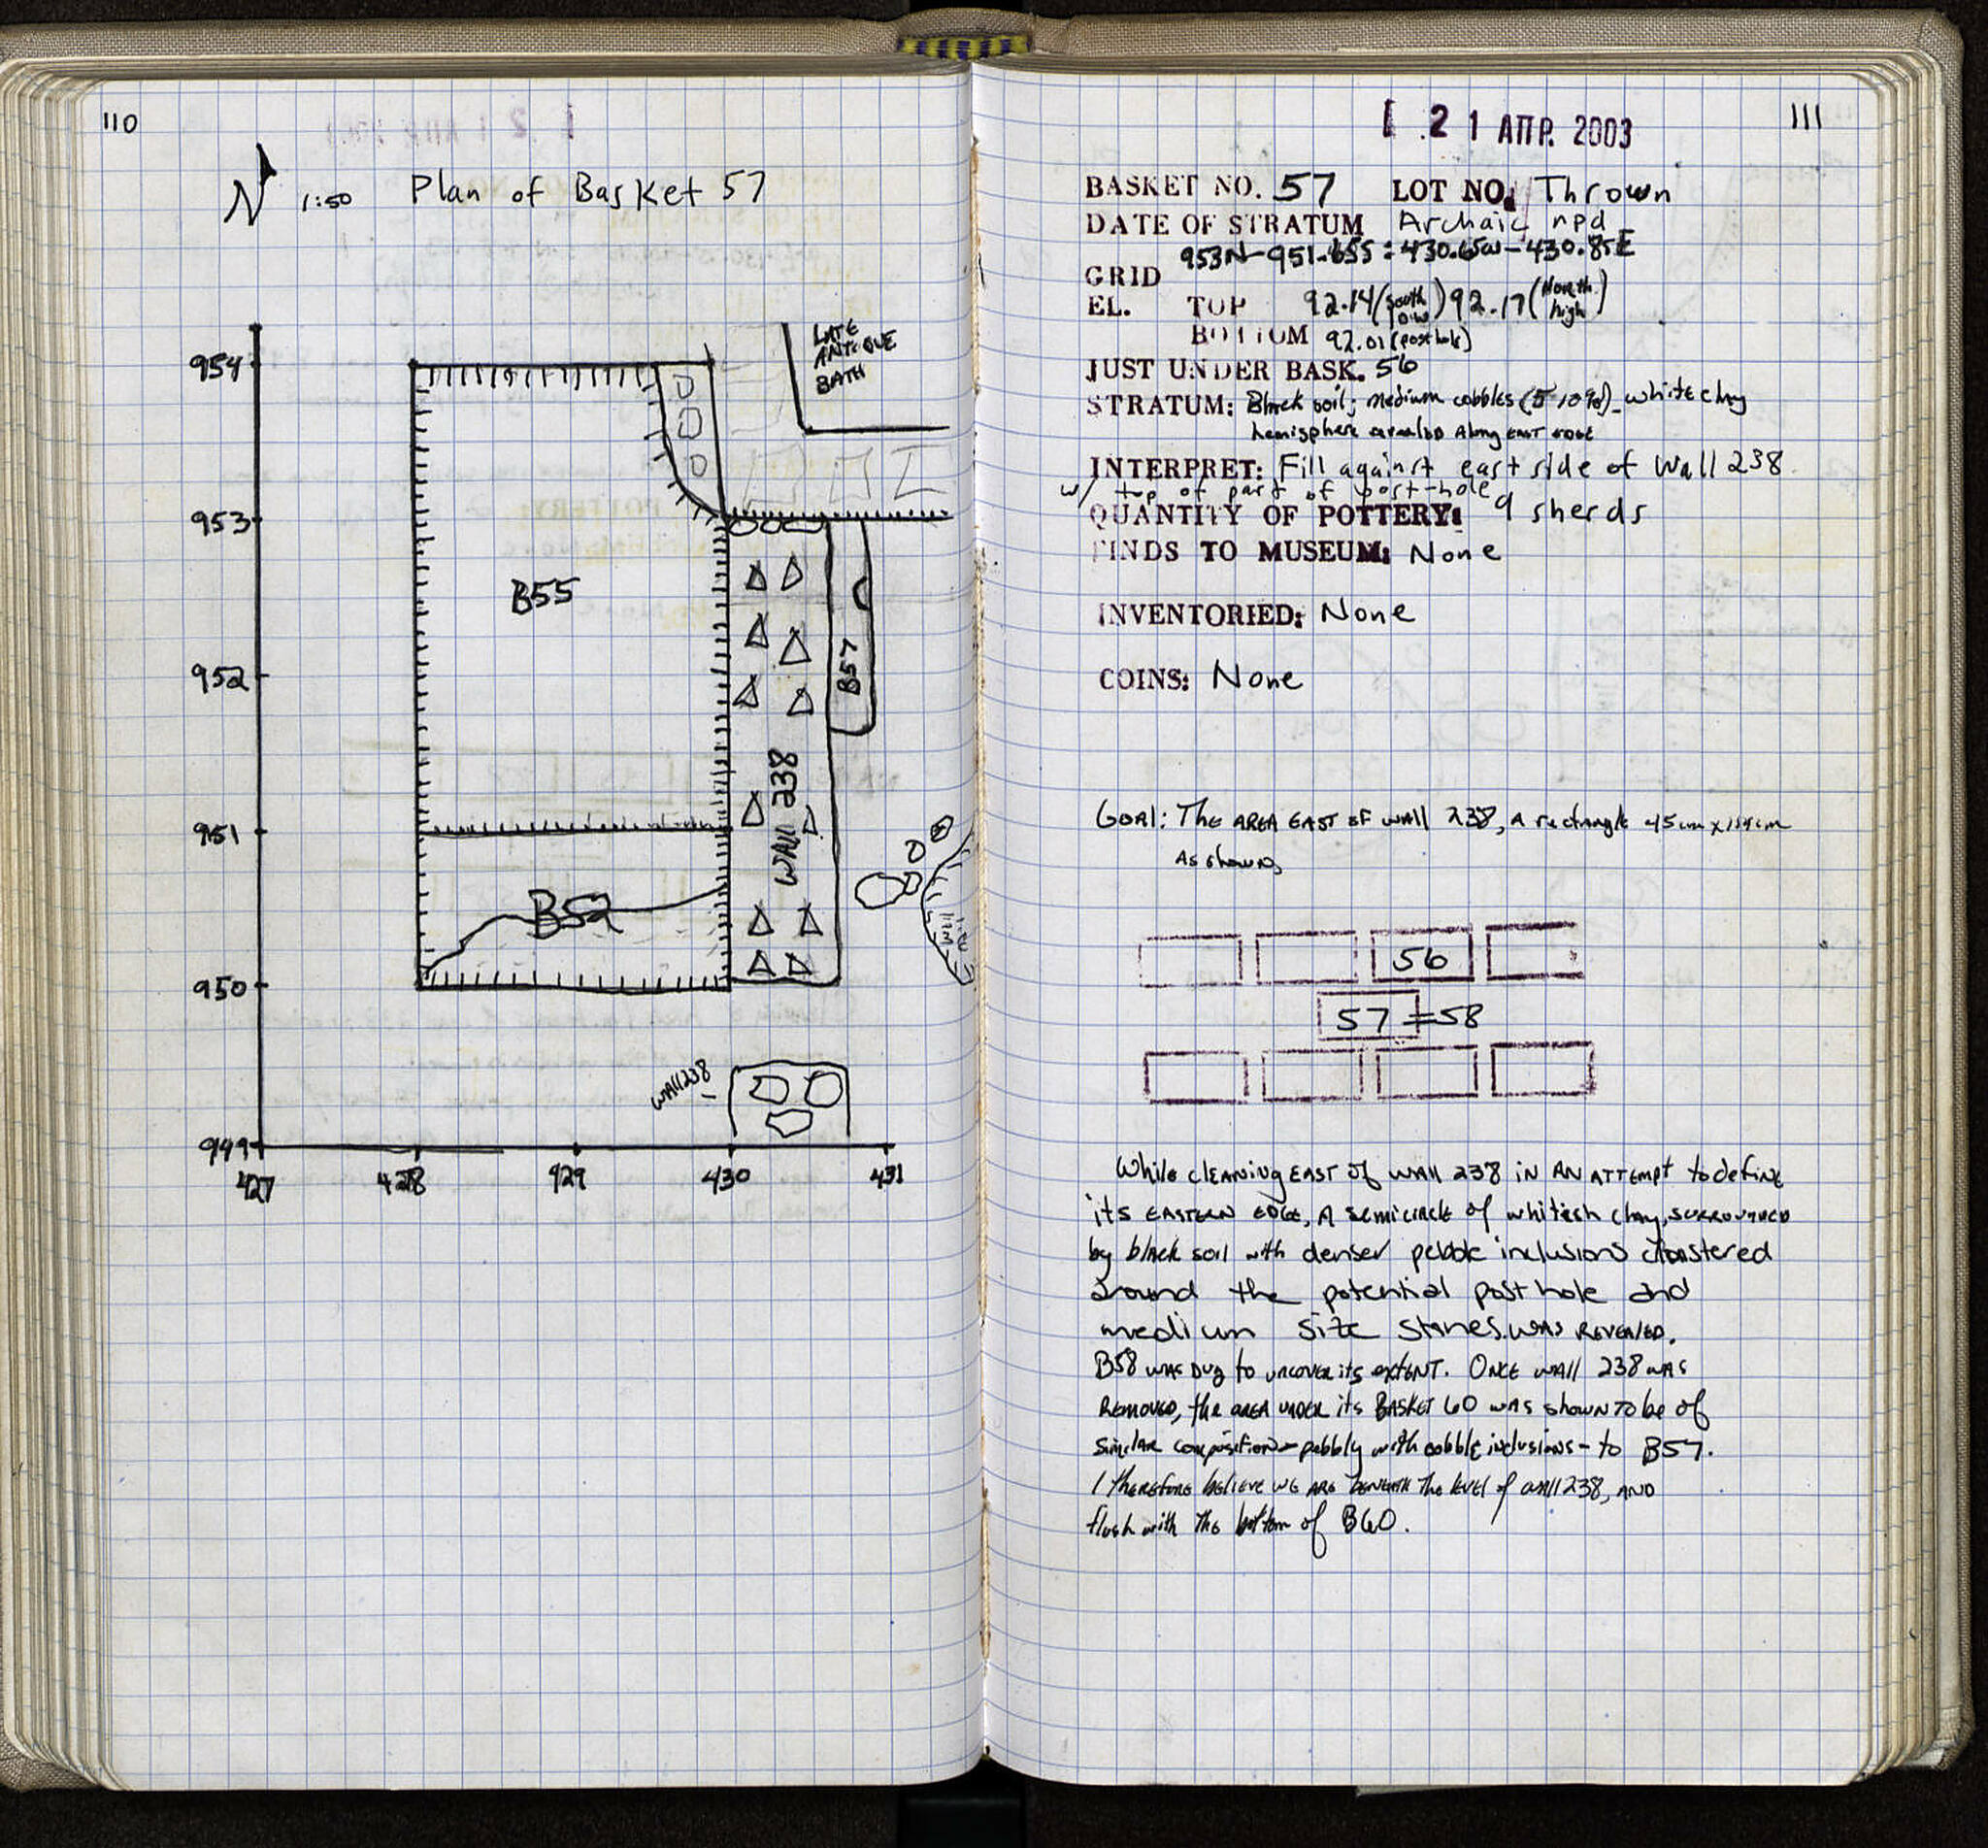 110
N 1:50 Plan of Basket 57
LATE
ANTIQUE
BATH
954
953
952
951
950
949
427 428 429 430 431
B55
B57
WAll 238
B52
WAll 238
111
21 ΑΠΡ. 2003
BASKET NO. 57 LOT NO. Thrown
DATE OF STRATUM Archaic npd
953N-951.65S : 430.65W-430.85E
GRID
EL. TOP 92.14 (South low) 92.17 (North high)
BOTTOM 92.01 (post hole)
JUST UNDER BASK. 56
STRATUM: Black soil; medium cobbles (5-10%) white clay
hemisphere along EAST EDGE
INTERPRET: Fill against east side of Wall 238
w/ top of part of post-hole
QUANTITY OF POTTERY: 9 sherds
FINDS TO MUSEUM: None
INVENTORIED: None
COINS: None
GOAL: The AREA EAST OF WAll 238, A rectangle 45cm x
As shown
56
57 =58
While cleaning EAST of WAll 238 IN AN ATTEMPT to define
its EASTERN EDGE, A semicircle of whitish clay, surrounded
by black soil with denser pebble inclusions clustered
around the potential post hole and
medium size stones. WAS REVEALED.
B58 WAS Dug to uncover its extENT. ONCE WAll 238 WAS
REMOVED, the AREA UNDER its BASKET 60 WAS shown TO be of
similar composition - pebbly with cobble inclusions - to B57.
I therefore believe WE ARE BENEATH The level of WAll 238, AND
flush with The bottom of B60.